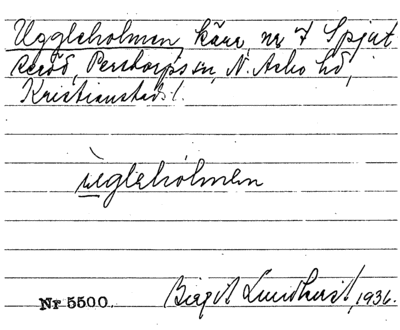 Uggleholmen kärr, nr 7 Spjut
seröd, Perstorps sn, N. Åsbo hd,
Kristianstads l.
ùgleholmen
Nr 5500. Birgit Lundkvist, 1936.